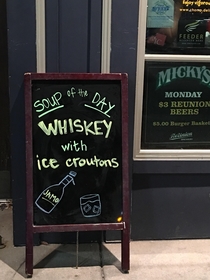 SOUP of the DAY
WHISKEY
with
ice croutons
JAMO
FEEDER
MICKY'S
MONDAY
$3 REUNION
BEERS
$5.00 Burger Basket